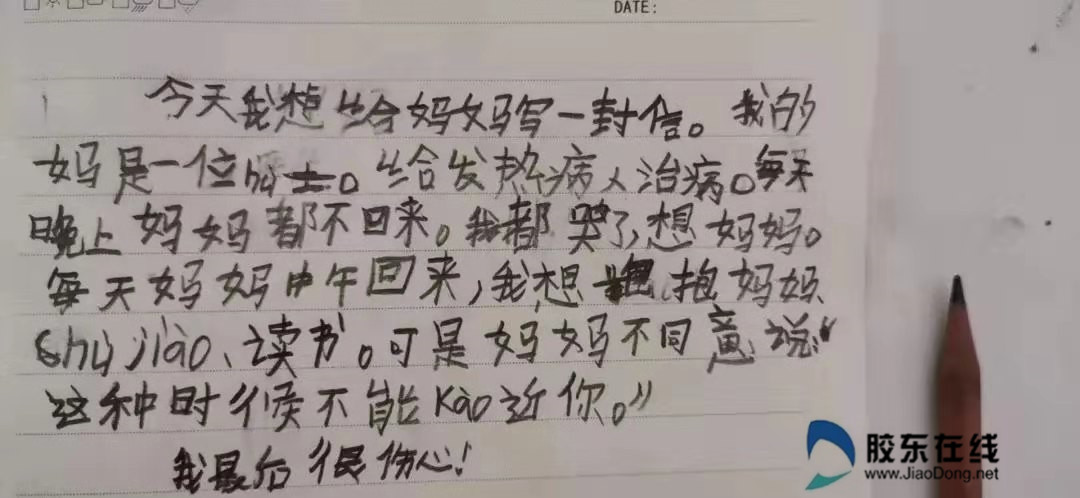 DATE:
今天我想给妈妈写一封信。我的
妈是一位hù士。给发热病人治病。每天
晚上妈妈都不回来。我都哭了,想妈妈。
每天妈妈中午回来,我想抱妈妈
Shuì jiào、读书。可是妈妈不同意说:“
这种时候不能Kào近你。”
我最后很伤心!
胶东在线
www.JiaoDong.net